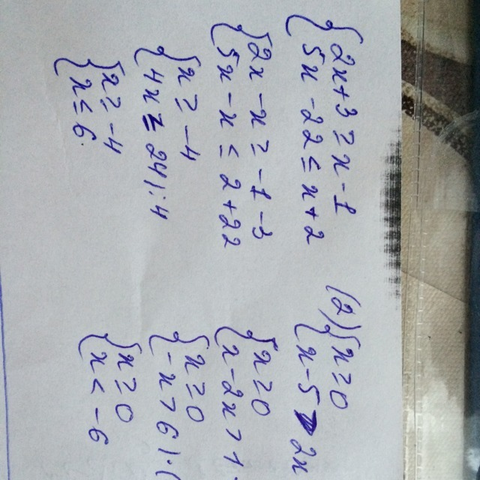 {2x+3 ≥ x-1
{5x-22 ≤ x+2
{2x-x ≥ -1-3
{5x-x ≤ 2+22
{x ≥ -4
{4x ≤ 24 | :4
{x ≥ -4
{x ≤ 6.
(2) {x ≥ 0
{x-5 > 2x
{x ≥ 0
{x-2x > 1
{x ≥ 0
{-x > 6 | ·(
{x ≥ 0
{x < -6